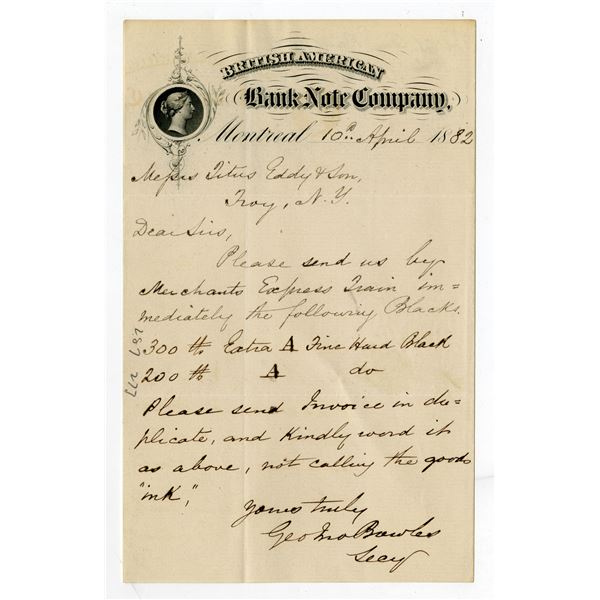 BRITISH AMERICAN
Bank Note Company,
Montreal 10th April 1882
Messrs Titus Eddy & Son,
Troy, N.Y.
Dear Sirs,
Please send us by
Merchants Express Train im=
mediately the following Blacks.
300 lb Extra A Fine Hard Black
200 lb A do
Please send Invoice in du=
plicate, and Kindly word it
as above, not calling the goods
"ink",
Yours truly
Geo Jno Bowles
Secy